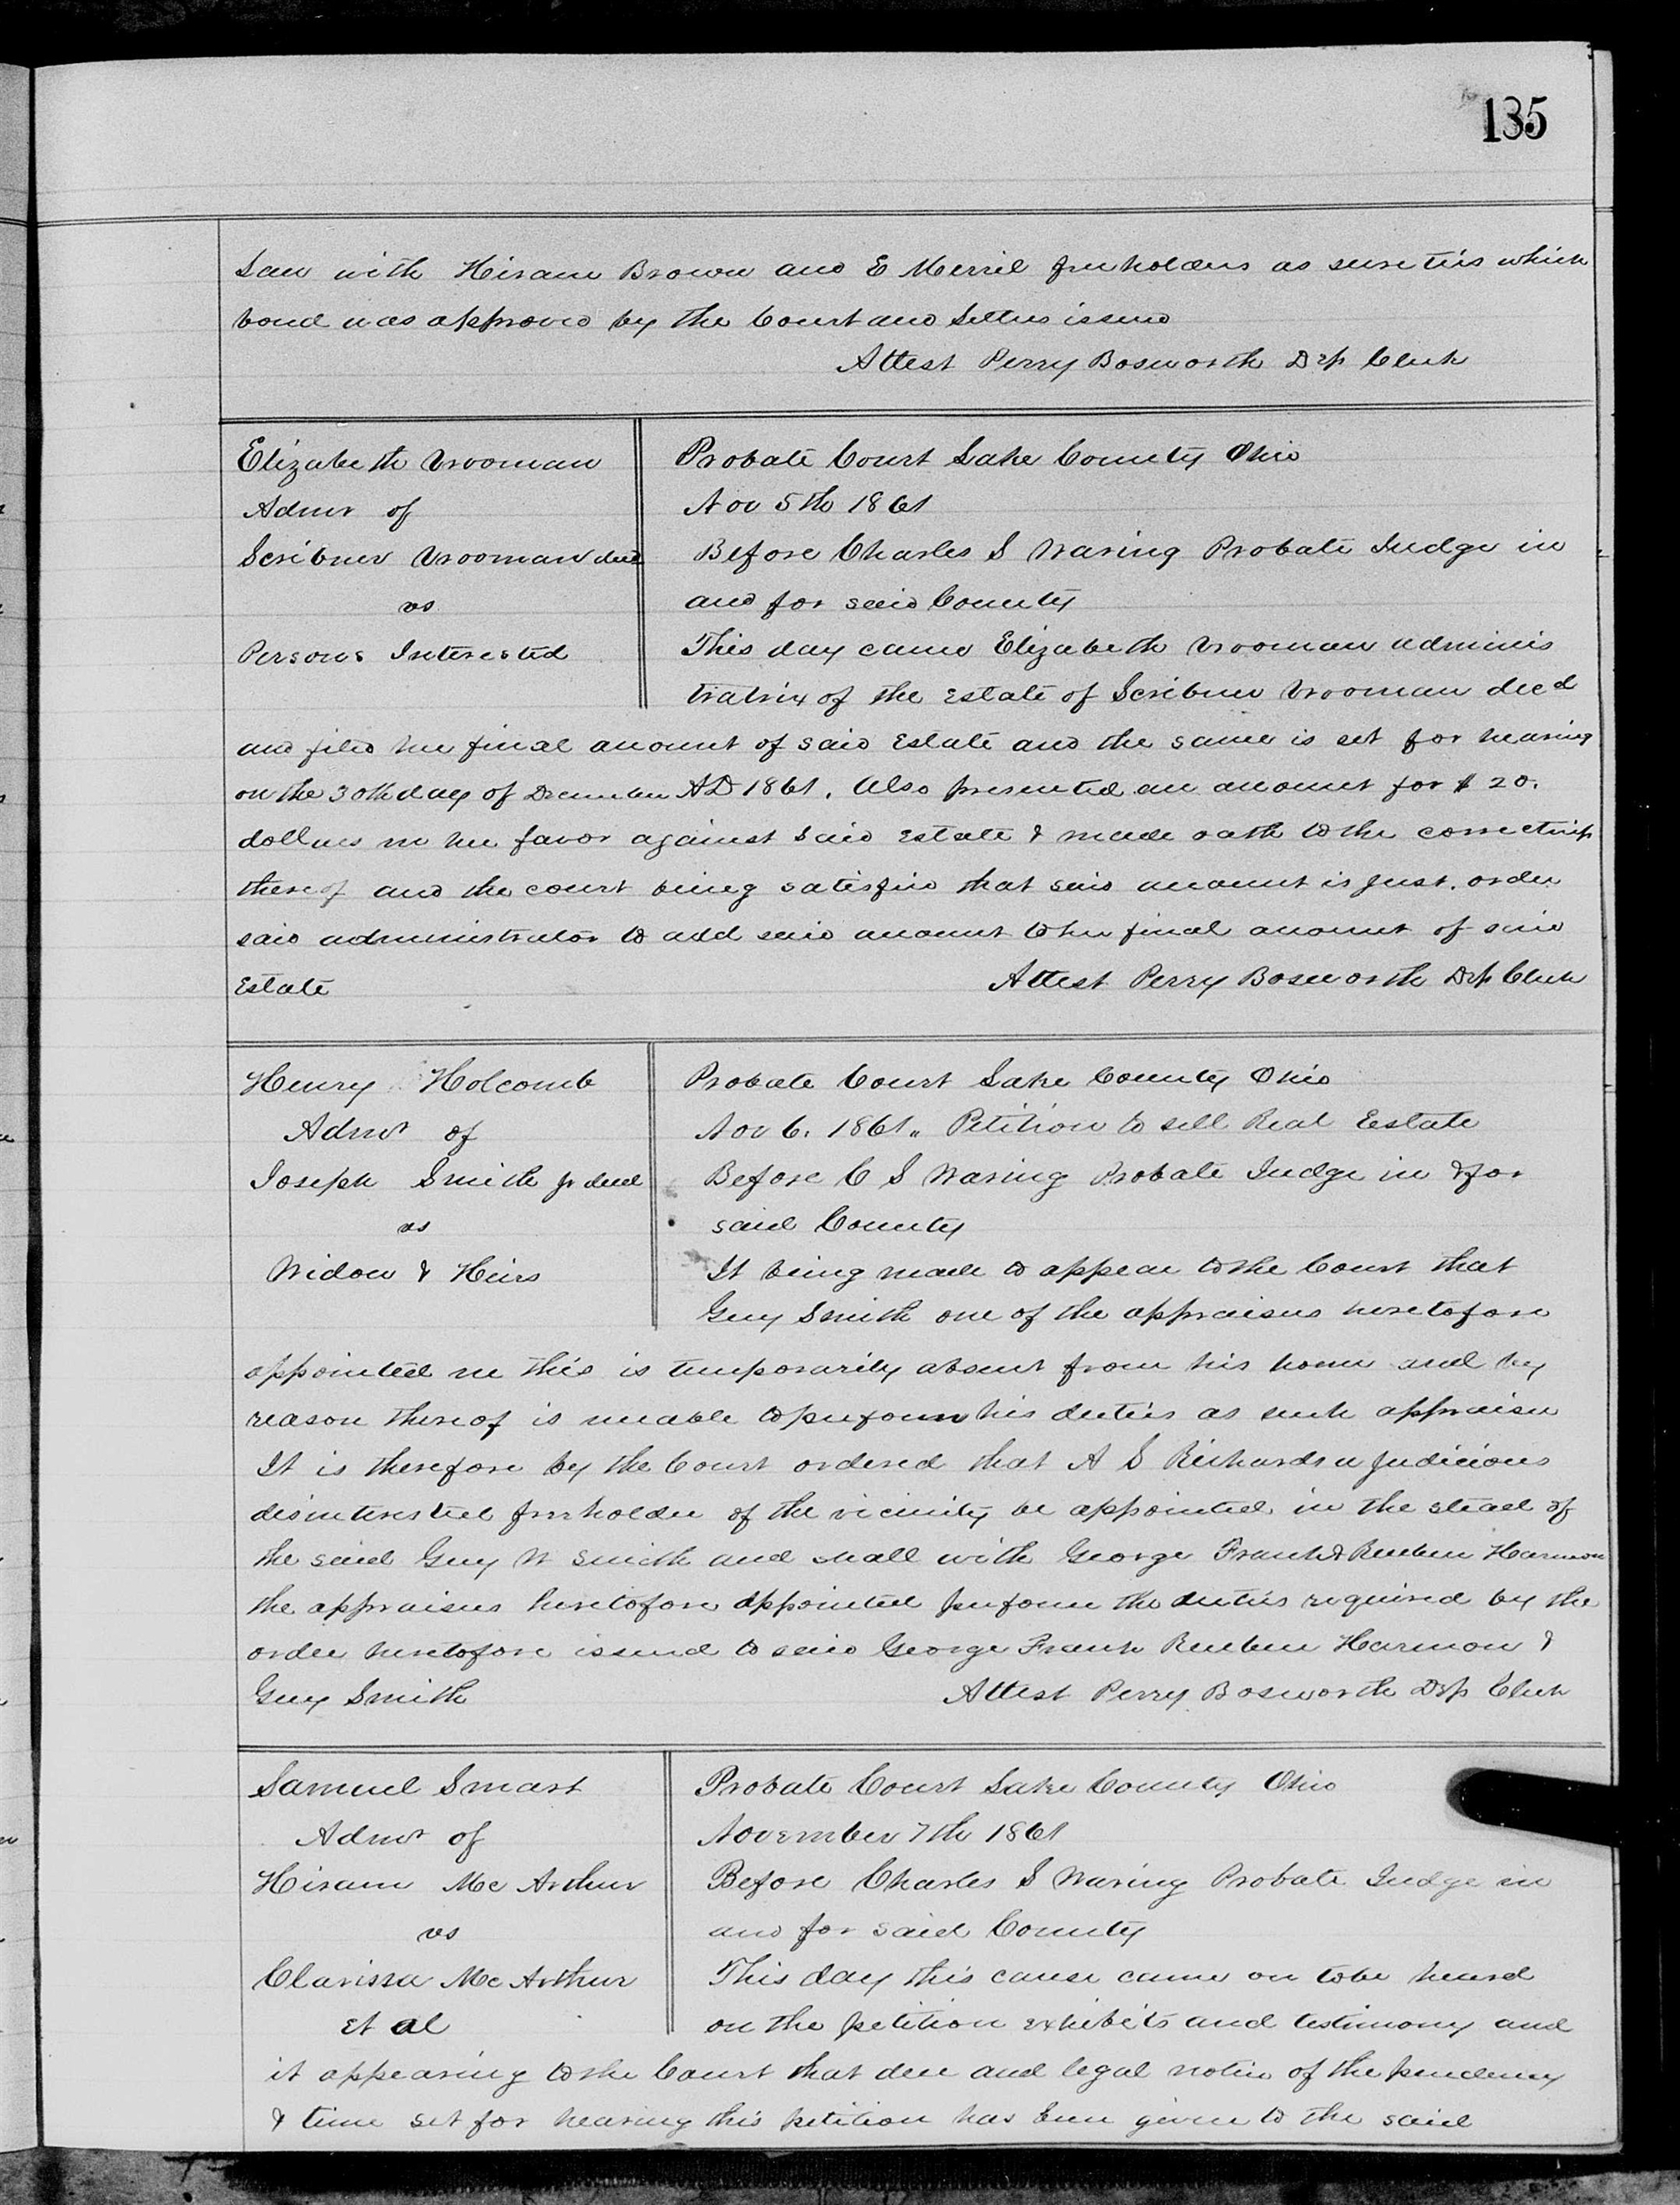 135
Law with Hiram Brown and E Merril freeholders as sureties which
bond was approved by the Court and Letters issued
Attest Perry Bosworth Dep Clerk
Elizabeth Vrooman
Admr of
Scribner Vrooman decd
vs
Persons Interested
Probate Court Lake County Ohio
Nov 5th 1861
Before Charles S Waring Probate Judge in
and for said County
This day came Elizabeth Vrooman adminis
tratrix of the Estate of Scribner Vrooman decd
and filed her final account of said Estate and the same is set for hearing
on the 30th day of December AD 1861. Also presented an account for $20.
dollars in her favor against said Estate & made oath to the correctness
thereof and the court being satisfied that said account is just. order
said administrator to add said account to her final account of said
Estate
Attest Perry Bosworth Dep Clerk
Henry Holcomb
Admr of
Joseph Smith Jr decd
vs
Widow & Heirs
Probate Court Lake County Ohio
Nov 6. 1861. Petition to sell Real Estate
Before C S Waring Probate Judge in & for
said County
It being made to appear to the Court that
Guy Smith one of the appraisers heretofore
appointed in this is temporarily absent from his home and by
reason thereof is unable to perform his duties as such appraiser
It is therefore by the Court ordered that A S Richards a judicious
disinterested freeholder of the vicinity be appointed in the stead of
the said Guy W Smith and shall with George Frank & Reuben Harmon
the appraisers heretofore appointed perform the duties required by the
order heretofore issued to said George Frank Reuben Harmon &
Guy Smith
Attest Perry Bosworth Dep Clerk
Samuel Smart
Admr of
Hiram Mc Arthur
vs
Clarissa Mc Arthur
et al
Probate Court Lake County Ohio
November 7th 1861
Before Charles S Waring Probate Judge in
and for said County
This day this cause came on to be heard
on the petition exhibits and testimony and
it appearing to the Court that due and legal notice of the pendency
& time set for hearing this petition has been given to the said